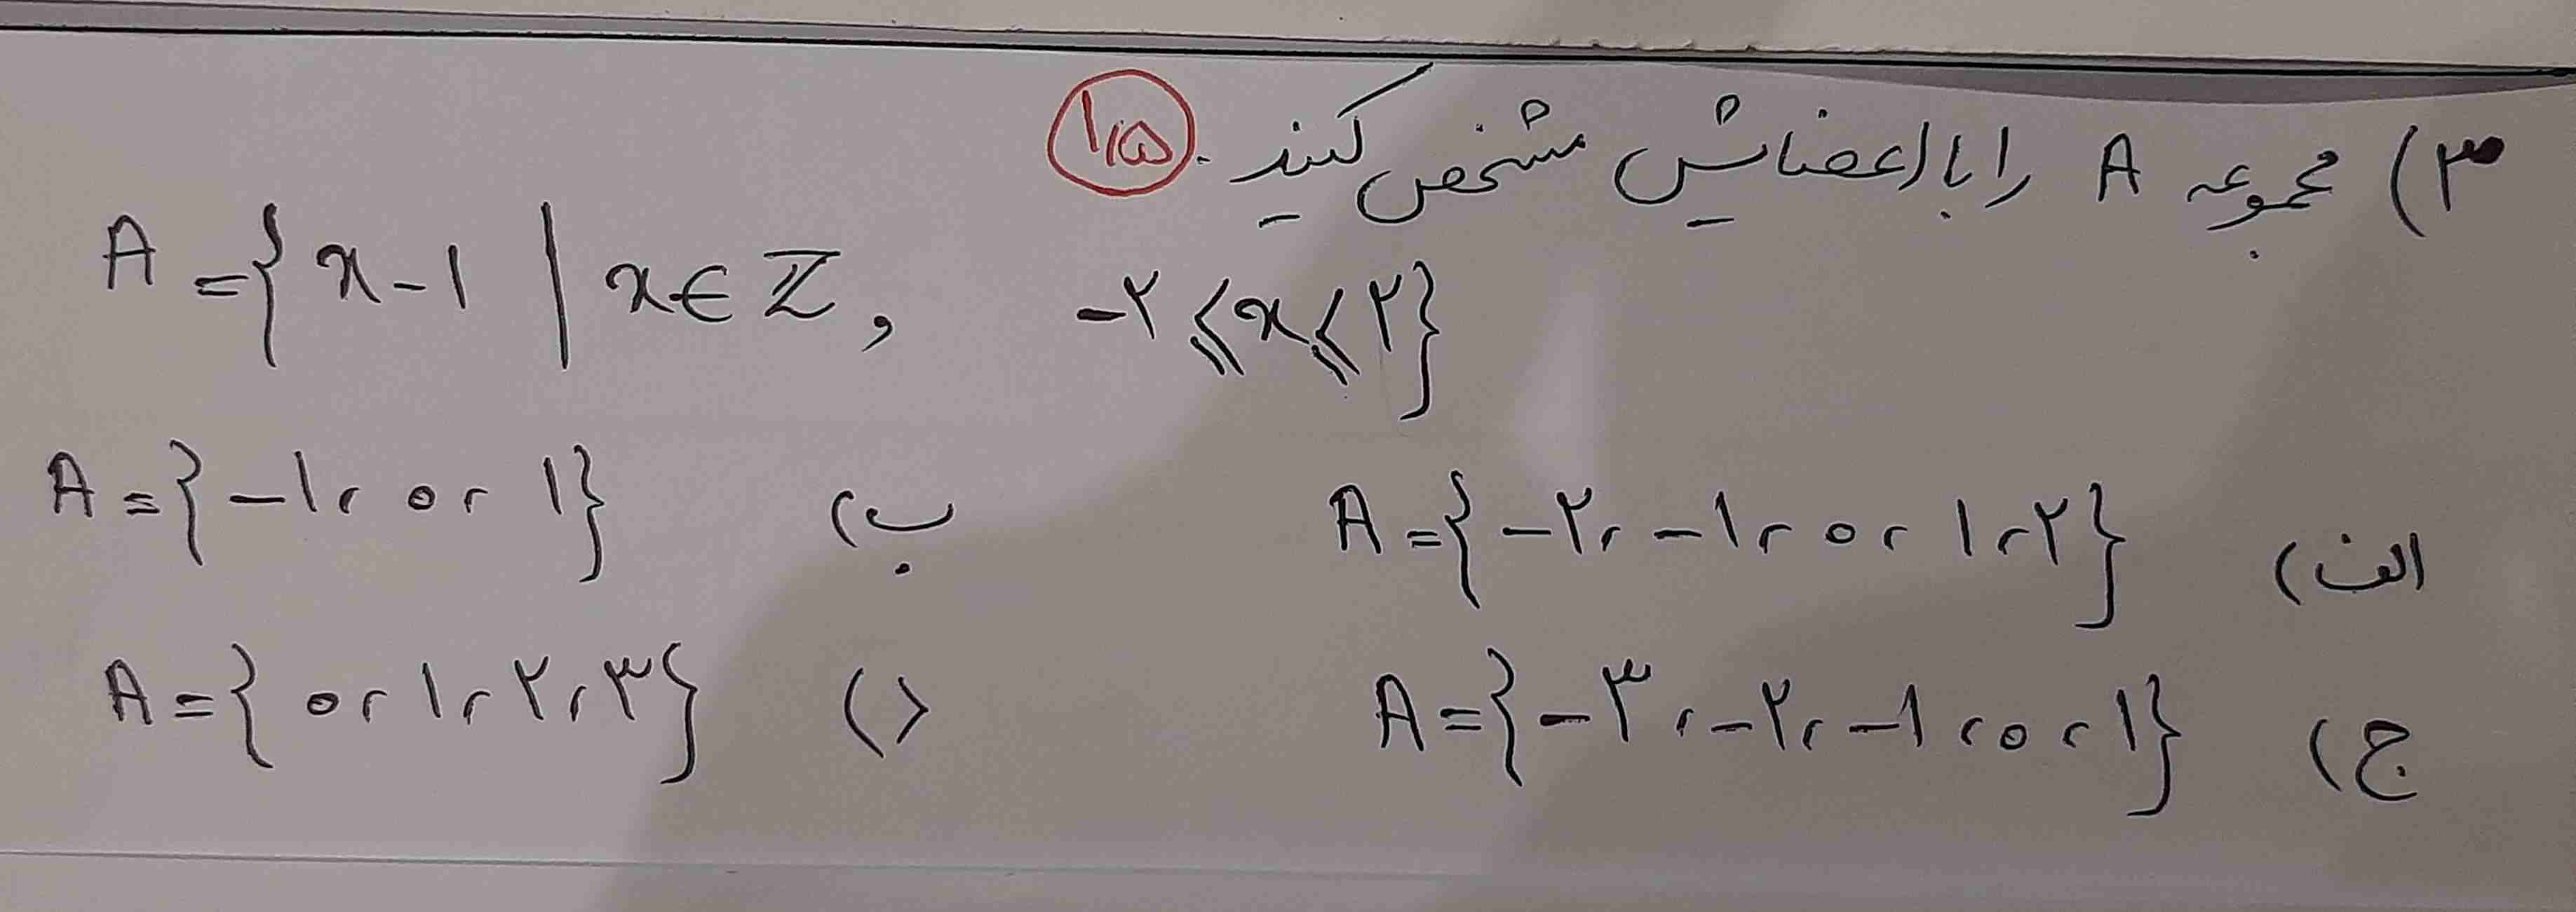 ۳) مجموعه A را با اعضایش مشخص کنید. ۱٫۵
A = { x - ۱ | x ∈ ℤ , -۲ ⩽ x ⩽ ۲ }
الف) A = { -۲, -۱, ۰, ۱, ۲ } ب) A = { -۱, ۰, ۱ }
ج) A = { -۳, -۲, -۱, ۰, ۱ } د) A = { ۰, ۱, ۲, ۳ }